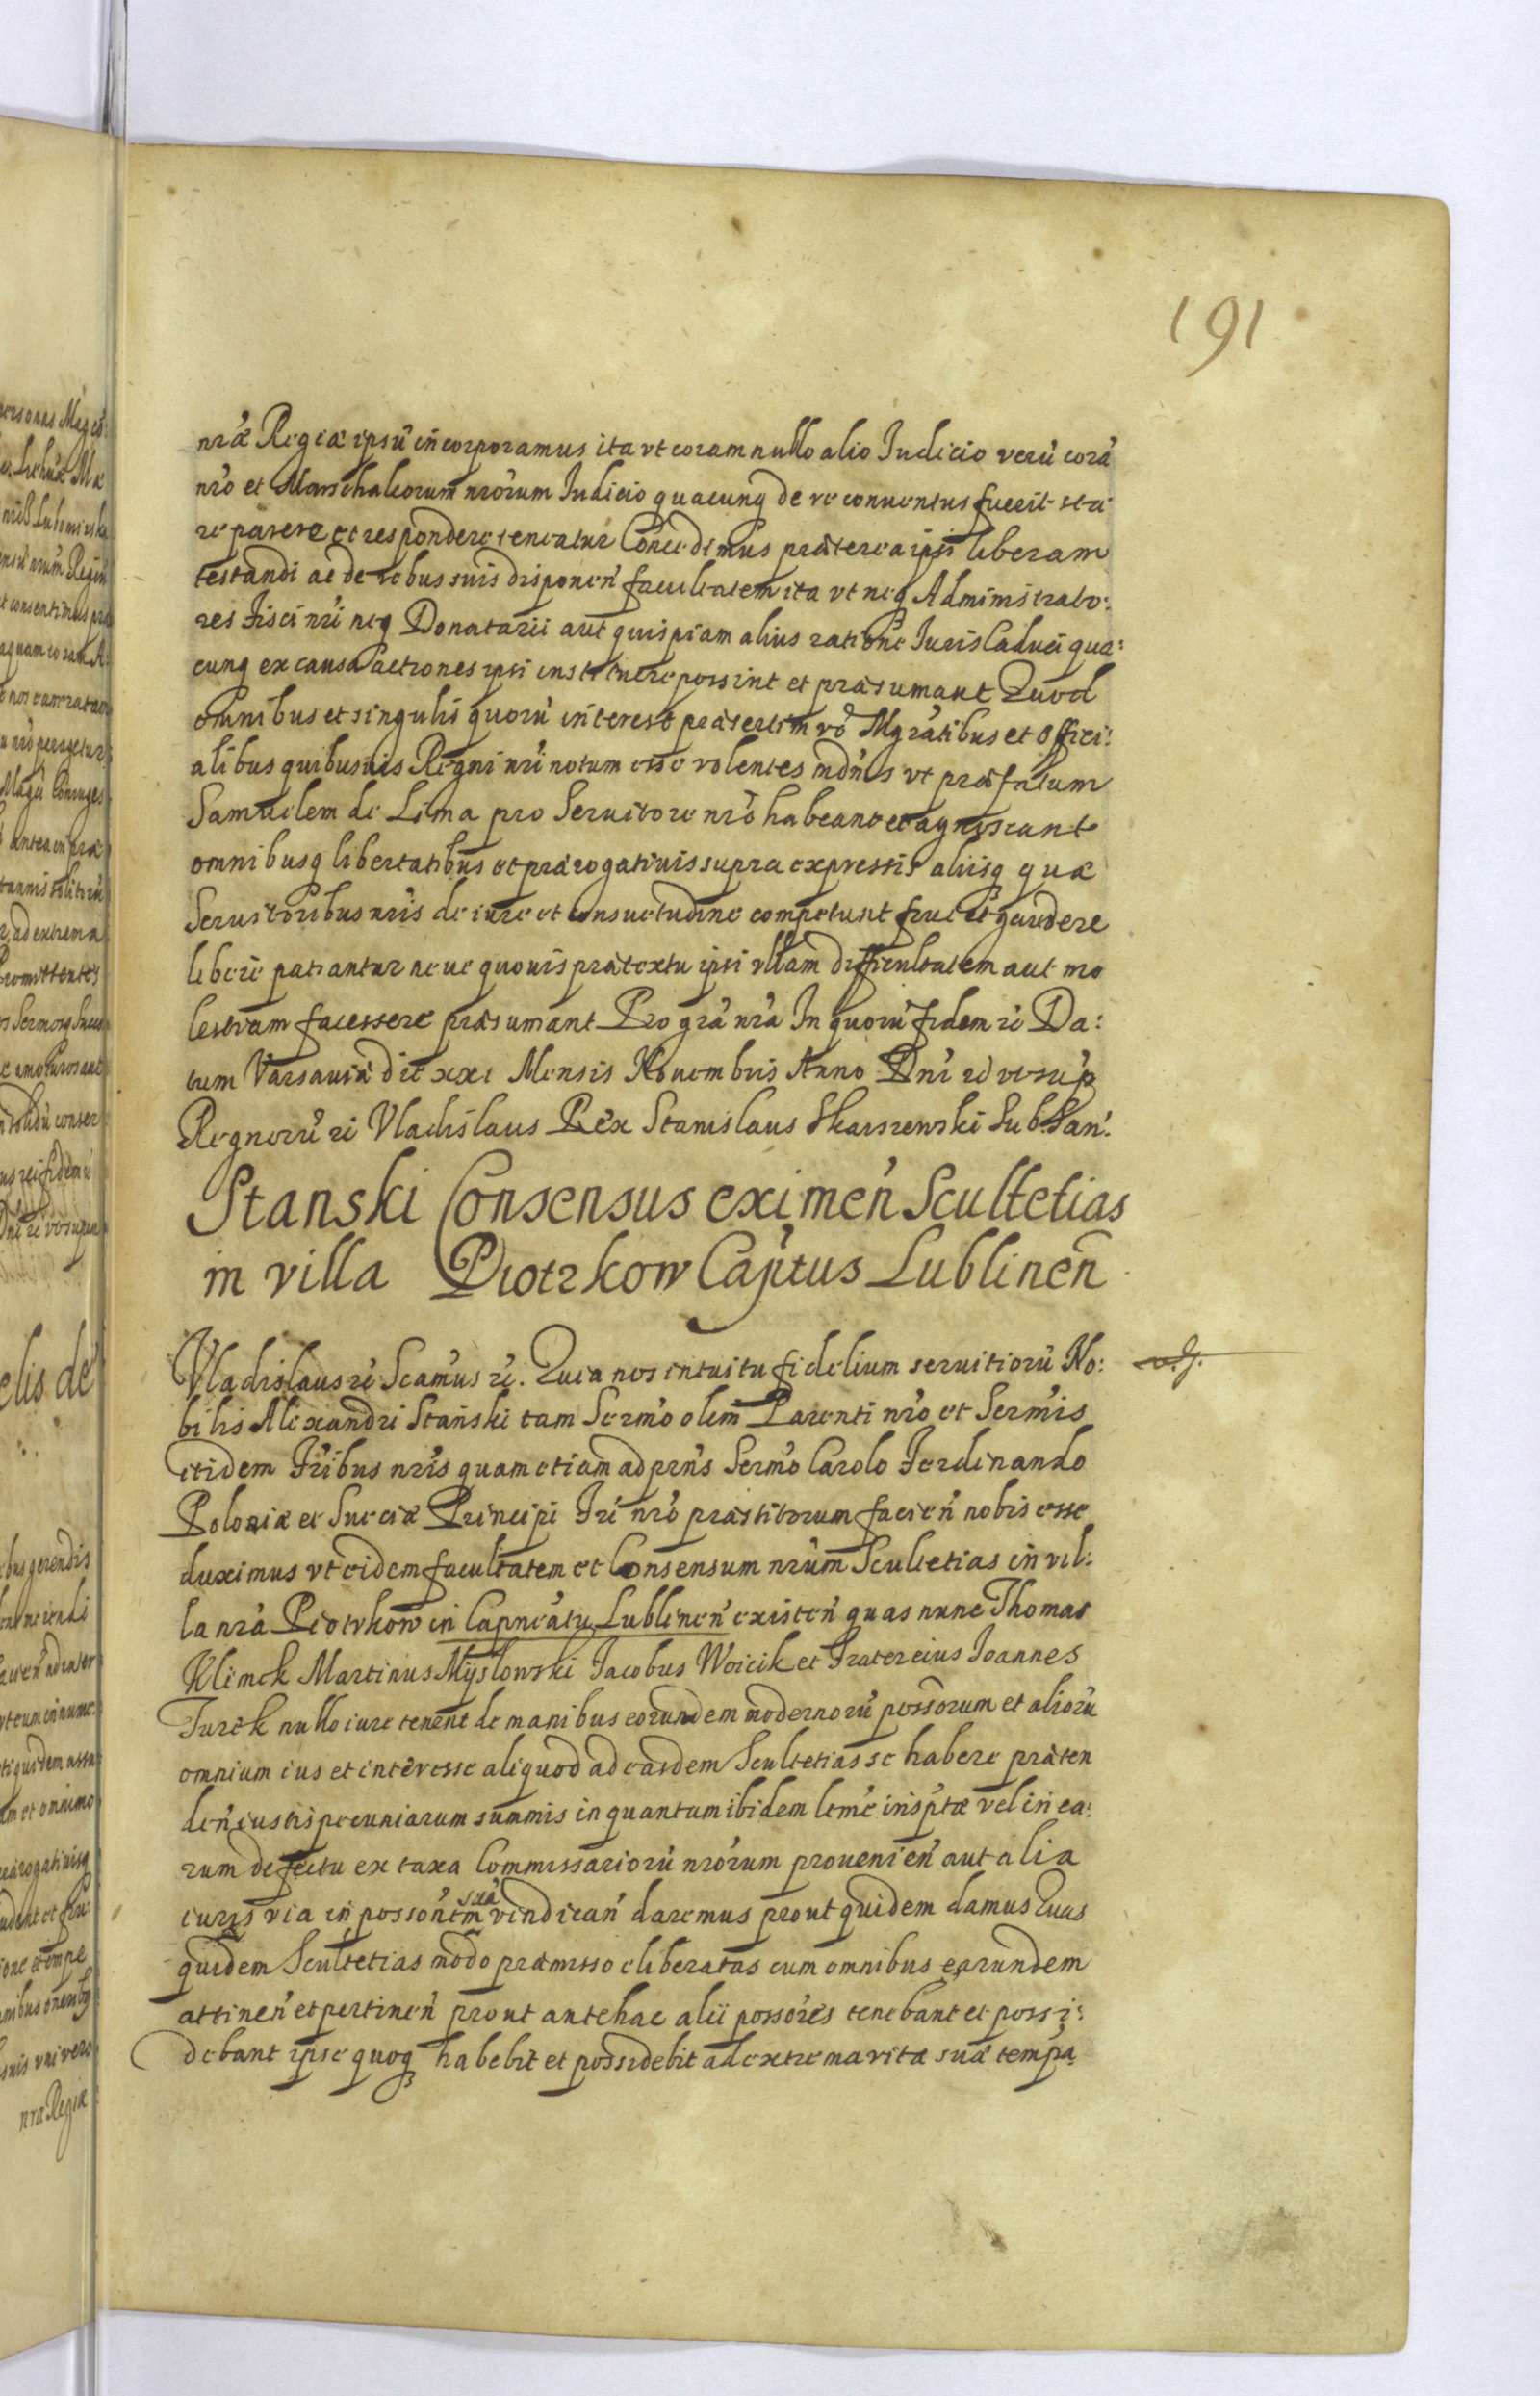 191
nræ Regiæ ipsū incorporamus ita vt coram nullo alio Iudicio verū corā
nro et Marschalcorum nrorum Iudicio quacunq de re conuentus fuerit sta
re parere et respondere teneatur Concedimus præterea ipsi liberam
testandi ac de rebus suis disponen facultatem ita vt neq Administrato:
res Fisci nri neq Donatarii aut quispiam alius ratione Iuris Caduci qua:
cunq ex causa actiones ipsi instituere possint et præsumant Quod
omnibus et singulis quorū interest præsertim vō Mgratibus et Offici:
alibus quibusuis Regni nri notum esse volentes mdmus vt præfatum
Samuelem de Lima pro Seruitore nro habeant et agnoscant
omnibusq libertatibus et prærogatiuis supra expressis aliisq quæ
Seruitoribus nris de iure et consuetudine competunt frui et gaudere
libere patiantur neue quouis prætextu ipsi vllam difficultatem aut mo
lestiam facessere præsumant Pro gra nra In quorū fidem rc Da:
tum Varsauiæ die xxi Mensis Nouembris Anno Dni rc vt sup
Regnorū rc Vladislaus Rex Stanislaus Skarszewski SubSan.
Stanski Consensus eximen Scultetias
in villa Piotrkow Capitus Lublinen
Vladislaus rc Scamus rc. Quia nos intuitu fidelium seruitiorū No:
bilis Alexandri Stański tam Sermo olim Parenti nro et Sermis
itidem Fribus nris quam etiam ad prns Sermo Carolo Ferdinando
Poloniæ et Sueciæ Principi Fri nro præstitorum facien nobis esse
duximus vt eidem facultatem et Consensum nrum Scultetias in vil:
la nra Piotrkow in Capneatu Lublinen existen quas nunc Thomas
Klimek Martinus Mysłowski Iacobus Woicik et Frater eius Ioannes
Turek nullo iure tenent de manibus eorundem modernorū possorum et aliorū
omnium ius et interesse aliquod ad easdem Scultetias se habere præten
den iustis pecuniarum summis in quantum ibidem ltme insptæ vel in ea:
rum defectu ex taxa Commissariorū nrorum prouenien aut alia
iuris via in possonem suā vindican daremus prout quidem damus Quas
quidem Scultetias modo præmisso eliberatas cum omnibus earundem
attinen et pertinen prout antehac alii possores tenebant et possi:
debant ipse quoq habebit et possidebit ad extrema vitæ suæ tempa